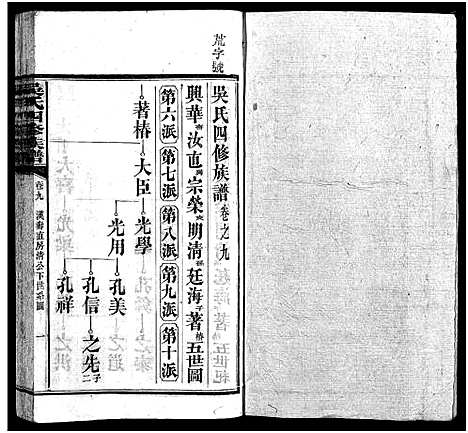 荒字號
吳氏四修族譜 卷之九
興華裔汝直房宗榮支明清派廷海子著椿五世圖
第六派 第七派 第八派 第九派 第十派
著椿 大臣 光學
光用 孔美
孔信 之先 子二
孔祥
吳氏四修族譜 卷九 漢裔直房清公下世系圖 一